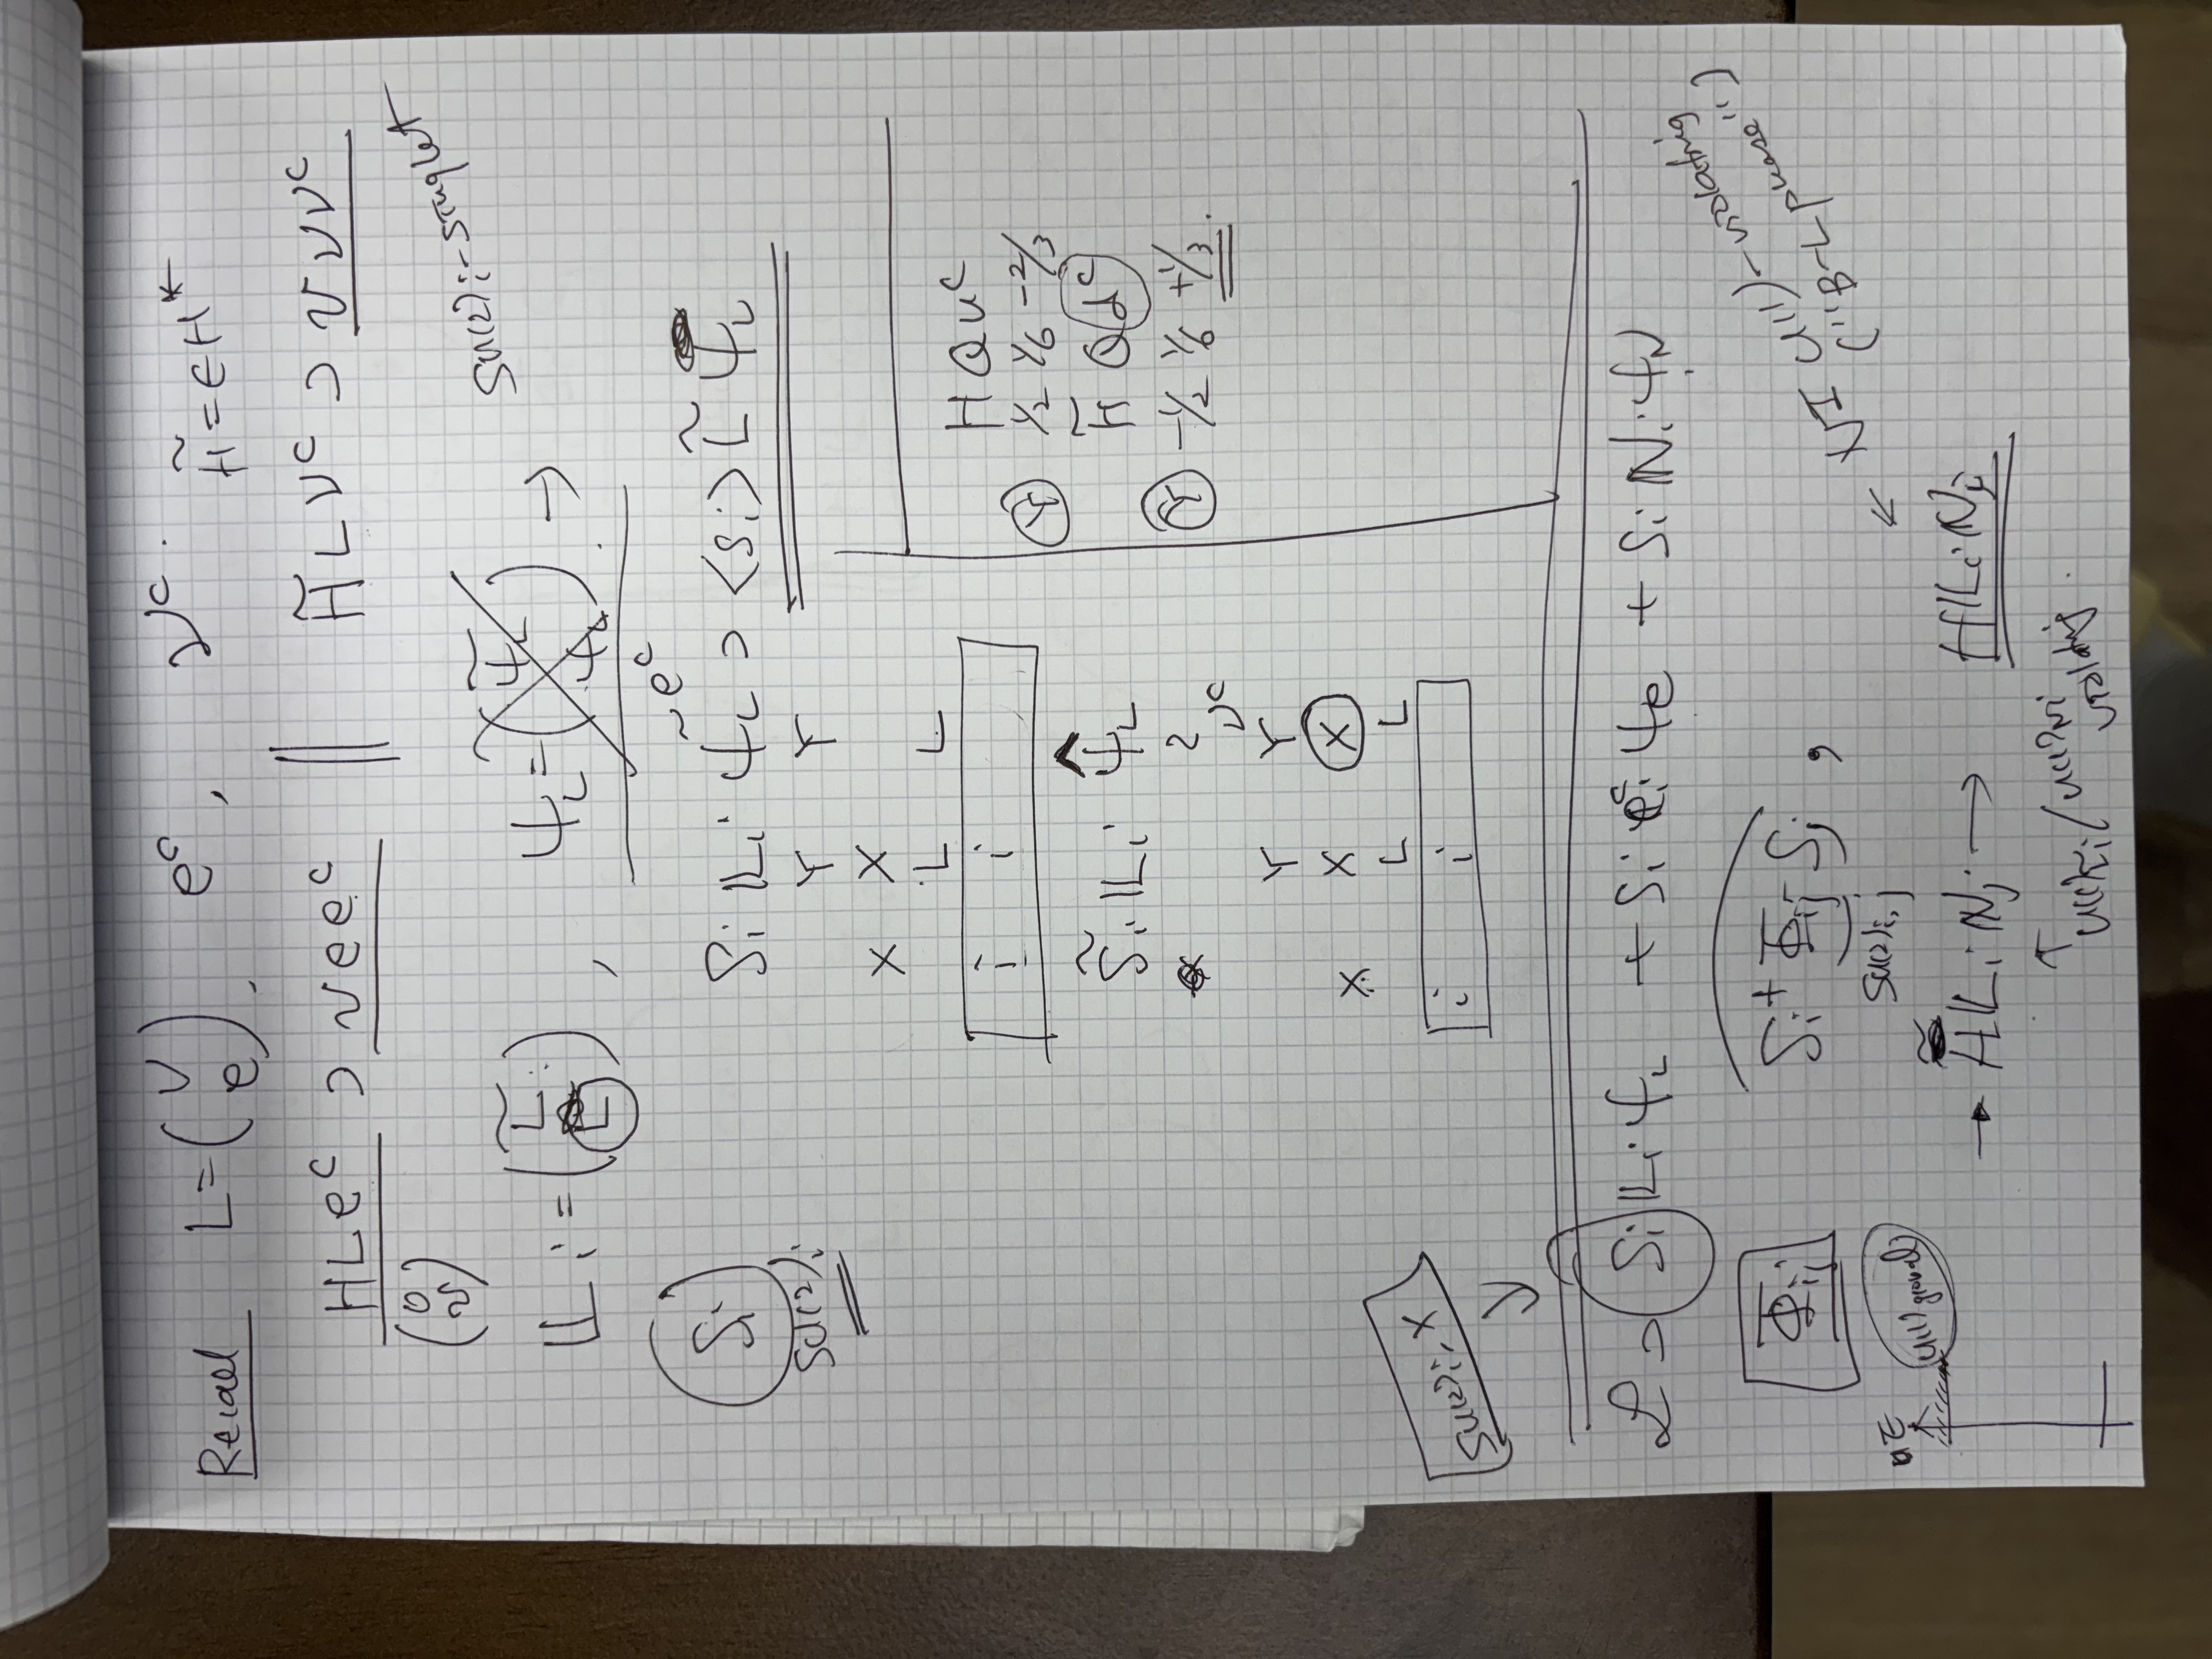 Recall L = (ν e), e^c, ν^c. H̃ = εH*
HLe^c ⊃ vee^c || H̃Lν^c ⊃ vνν^c
(0 v)
𝕃_i = (L̃ L), ψ_L = (ψ̃_L ψ_L) → SU(2)_i-singlet
~e^c
S_i S_i 𝕃_i ψ_L ⊃ <S_i> L̃ ψ_L
SU(2)_i Y Y
X X
L L
i i
S̃_i 𝕃_i ψ̂_L
2
ν^c
Y Y
X X X
L L
i i
H Q u^c
Y 1/2 1/6 -2/3
H̃ Q d^c
Y -1/2 1/6 +1/3.
SU(2)_i, X
↓
ℒ ⊃ S_i 𝕃_i ψ_L + S_i e^c_i ψ_e + S_i ℕ_i ψ_N
Φ_ij S_i^+ Φ_ij S_j ,
SU(2)_i,j
NI U(1)-violating
("B-L phase")
E U(1) global
→ H𝕃_i ℕ_j → H𝕃_i ℕ_j
↑ U(1)_L̃i / U(1)_Ni violating.